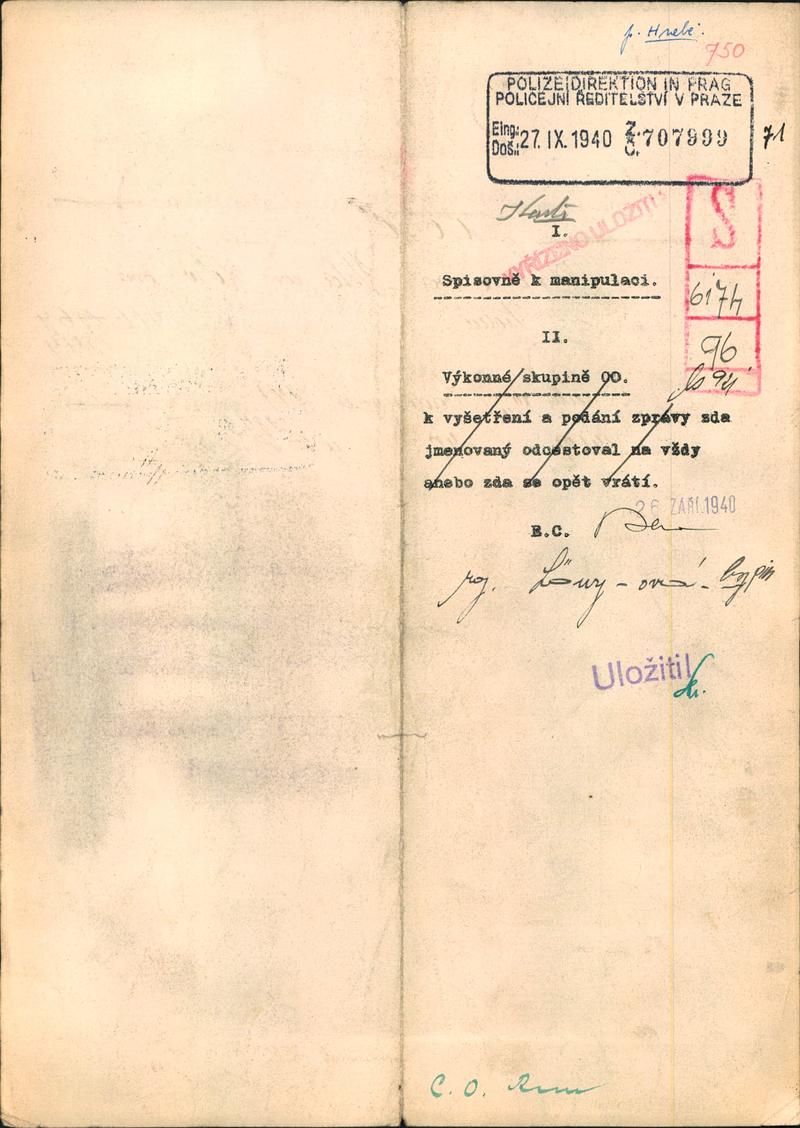 p. Hrebč.
750
POLIZEIDIREKTION IN PRAG
POLICEJNÍ ŘEDITELSTVÍ V PRAZE
Eing.: Doš.: 27. IX. 1940 Z. Č. 707999
71
I.
VYŘÍZENO ULOŽITI
S
Spisovně k manipulaci.
6174
II.
96
Výkonné skupině OO.
k vyšetření a podání zprávy zda
jmenovaný odcestoval na vždy
anebo zda se opět vrátí.
26. ZÁŘÍ. 1940
E.C.
Löwy - ová -
Uložiti
C. O.